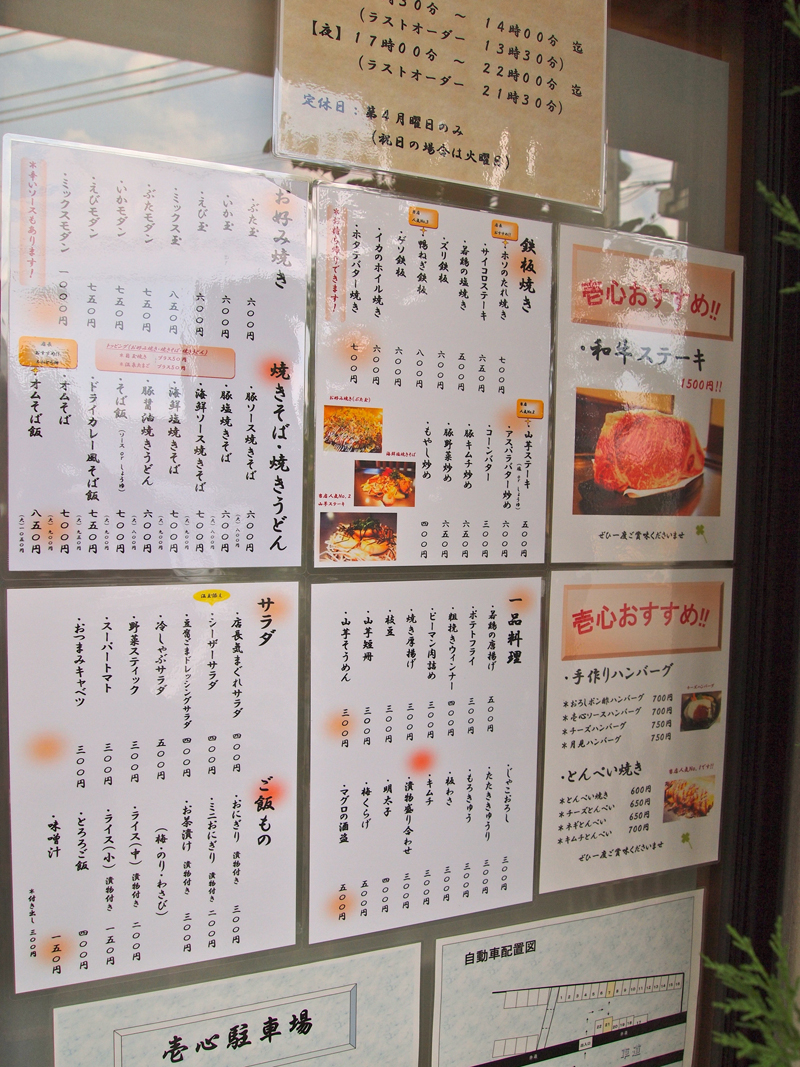 時30分 〜 14時00分 迄
(ラストオーダー 13時30分)
【夜】17時00分 〜 22時00分 迄
(ラストオーダー 21時30分)
定休日:第4月曜日のみ
(祝日の場合は火曜日)
お好み焼き
・ぶた玉 六〇〇円
・いか玉 六〇〇円
・えび玉 六〇〇円
・ミックス玉 八五〇円
・ぶたモダン 七五〇円
・いかモダン 七五〇円
・えびモダン 七五〇円
・ミックスモダン 一〇〇〇円
*辛いソースもあります!
焼きそば・焼きうどん
・豚ソース焼きそば 六〇〇円
・豚塩焼きそば 六〇〇円
・海鮮ソース焼きそば 七〇〇円
・海鮮塩焼きそば 七〇〇円
・豚醤油焼きうどん 六〇〇円
・そば飯(ソース or しょうゆ) 七〇〇円
・ドライカレー風そば飯 七五〇円
・オムそば 七〇〇円
・オムそば飯 八五〇円
鉄板焼き
・ホソのたれ焼き 七〇〇円
・サイコロステーキ 六五〇円
・若鶏の塩焼き 五〇〇円
・ズリ鉄板 六〇〇円
・鴨ねぎ鉄板 八〇〇円
・ゲソ鉄板 六〇〇円
・イカのホイル焼き 六〇〇円
・ホタテバター焼き 七〇〇円
*お持ち帰りできます!
・山芋ステーキ 五〇〇円
・アスパラバター炒め 六〇〇円
・コーンバター 三〇〇円
・豚キムチ炒め 六五〇円
・豚野菜炒め 六五〇円
・もやし炒め 四〇〇円
お好み焼き(ぶた玉)
海鮮塩焼きそば
当店人気No.2
山芋ステーキ
壱心おすすめ!!
・和牛ステーキ
1500円!!
ぜひ一度ご賞味くださいませ
サラダ
・店長気まぐれサラダ 四〇〇円
・シーザーサラダ 四〇〇円
・豆腐ごまドレッシングサラダ 四〇〇円
・冷しゃぶサラダ 五〇〇円
・野菜スティック 三〇〇円
・スーパートマト 三〇〇円
・おつまみキャベツ 三〇〇円
ご飯もの
・おにぎり 漬物付き 三〇〇円
・ミニおにぎり 漬物付き 二〇〇円
・お茶漬け 漬物付き 三〇〇円
(梅・のり・わさび)
・ライス(中) 漬物付き 二〇〇円
・ライス(小) 漬物付き 一五〇円
・とろろご飯 四〇〇円
・味噌汁 一五〇円
*付き出し 三〇〇円
一品料理
・若鶏の唐揚げ 五〇〇円
・ポテトフライ 三〇〇円
・粗挽きウィンナー 四〇〇円
・ピーマン肉詰め 三〇〇円
・焼き厚揚げ 三〇〇円
・枝豆 三〇〇円
・山芋短冊 三〇〇円
・山芋そうめん 三〇〇円
・じゃこおろし 三〇〇円
・たたききゅうり 三〇〇円
・もろきゅう 三〇〇円
・板わさ 三〇〇円
・キムチ 三〇〇円
・漬物盛り合わせ 三〇〇円
・明太子 四〇〇円
・梅くらげ 五〇〇円
・マグロの酒盗 五〇〇円
壱心おすすめ!!
・手作りハンバーグ
*おろしポン酢ハンバーグ 700円
*壱心ソースハンバーグ 700円
*チーズハンバーグ 750円
*月見ハンバーグ 750円
・とんぺい焼き
*とんぺい焼き 600円
*チーズとんぺい 650円
*ネギとんぺい 650円
*キムチとんぺい 700円
ぜひ一度ご賞味くださいませ
壱心駐車場
自動車配置図
車道